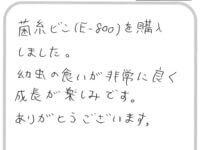 菌糸ビン(E-800)を購入
しました。
幼虫の食いが非常に良く
成長が楽しみです。
ありがとうございます。